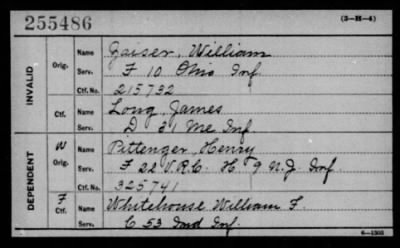 255486 (3-H-4)
INVALID
Orig. Name Gaiser, William
Serv. F 10 Ohio Inf.
Ctf. No. 215732
Ctf. Name Long, James
Serv. D 31 Me Inf.
DEPENDENT
W Orig. Name Pittenger, Henry
Serv. F 22 V.R.C. H 9 N.J. Inf.
Ctf. No. 325741
F Ctf. Name Whitehouse William F.
Serv. C 53 Ind Inf.
6-1303